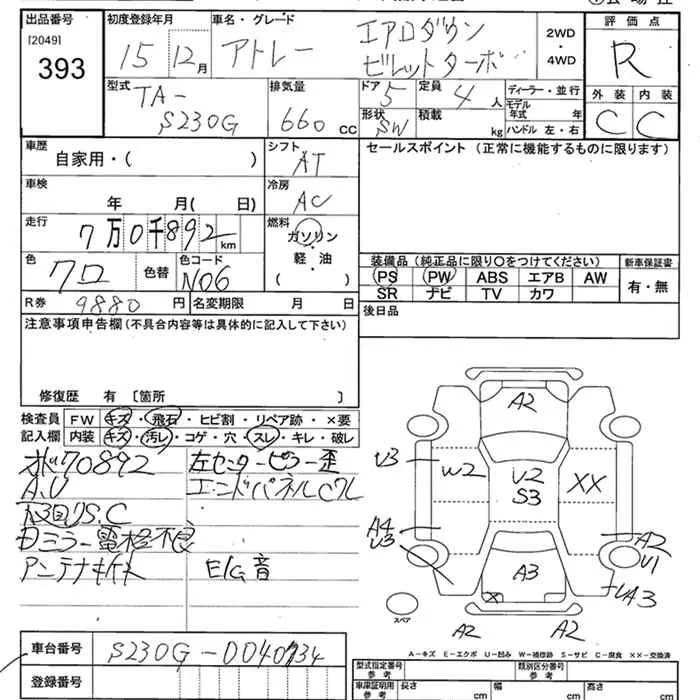 出品番号 初度登録年月 車名・グレード 評価点
[2049] 393
15 12月 アトレー エアロダウン ビレットターボ 2WD・4WD R
型式 TA-S230G 排気量 660 CC ドア 5 定員 4 人 ディーラー・並行 外装 内装
形状 SW 積載 kg モデル年式 年 ハンドル 左・右 C C
車歴 自家用・( ) シフト AT セールスポイント (正常に機能するものに限ります)
車検 年 月( 日) 冷房 AC
走行 7万0千892km 燃料 ガソリン・軽油 ( )
色 クロ 色替 色コード N06
装備品 (純正品に限り〇をつけてください) 新車保証書
PS PW ABS エアB AW 有・無
SR ナビ TV カワ
R券 9880 円 名変期限 月 日 後日品
注意事項申告欄 (不具合内容等は具体的に記入して下さい)
修復歴 有 〔箇所 〕
検査員 FW キズ・飛石・ヒビ割・リペア跡・×要
記入欄 内装 キズ・汚レ・コゲ・穴・スレ・キレ・破レ
70892 左センターピラー歪
A,U エンドパネルC7L
S.C
ミラー電格不良
アンテナキズ E/G音
A2
U3 W2 U2 S3 XX
A4 U3 A2 U1
A3 UA3
スペア A2 A2
A-キズ E-エクボ U-凹み W-補修跡 S-サビ C-腐食 XX-交換済
車台番号 S230G-0040734
登録番号
型式指定番号 参考 類別区分番号 参考
車庫証明用 参考 長さ cm 幅 cm 高さ cm